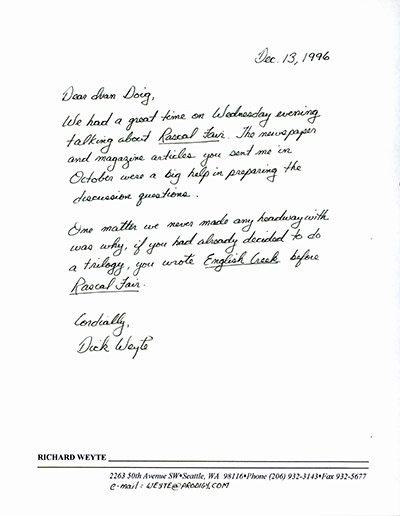 Dec. 13, 1996
Dear Ivan Doig,
We had a great time on Wednesday evening
talking about Rascal Fair. The newspaper
and magazine articles you sent me in
October were a big help in preparing the
discussion questions.
One matter we never made any headway with
was why, if you had already decided to do
a trilogy, you wrote English Creek before
Rascal Fair.
Cordially,
Dick Weyte
RICHARD WEYTE
2263 50th Avenue SW•Seattle, WA 98116•Phone (206) 932-3143•Fax 932-5677
e-mail: WEYTE@PRODIGY.COM